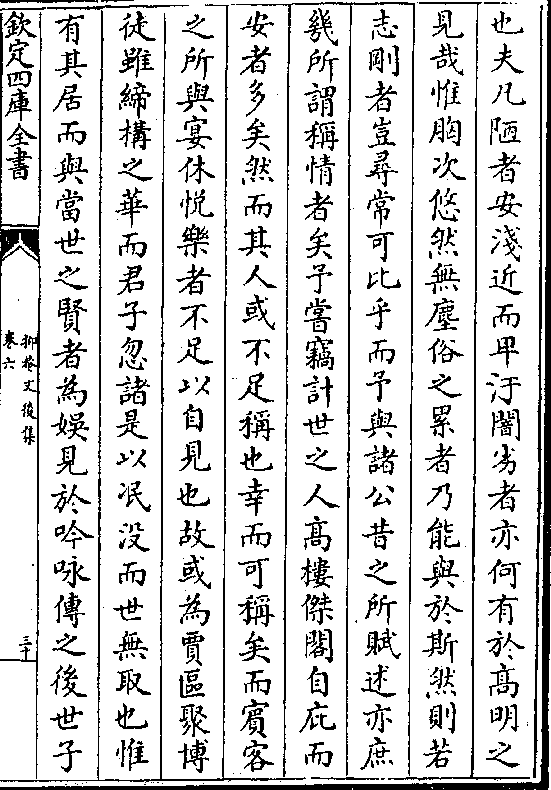 也夫凡陋者安淺近而卑汙闇劣者亦何有於髙明之
見哉惟胸次悠然無塵俗之累者乃能與於斯然則若
志剛者豈尋常可比乎而予與諸公昔之所賦述亦庶
幾所謂稱情者矣予嘗竊計世之人髙樓傑閣自庇而
安者多矣然而其人或不足稱也幸而可稱矣而賓客
之所與宴休悦樂者不足以自見也故或為賈區聚博
徒雖締構之華而君子忽諸是以泯没而世無取也惟
有其居而與當世之賢者為娱見於吟咏傳之後世子
欽定四庫全書
抑菴文後集
卷六
三十